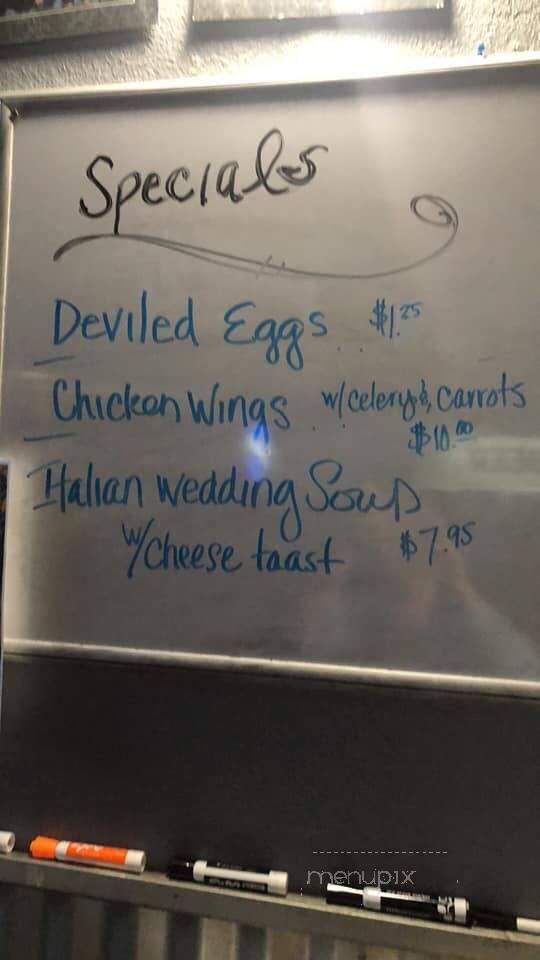 Specials
Deviled Eggs $1.25
Chicken Wings w/celery & carrots
$10.00
Italian Wedding Soup
w/Cheese taast $7.95
menupix